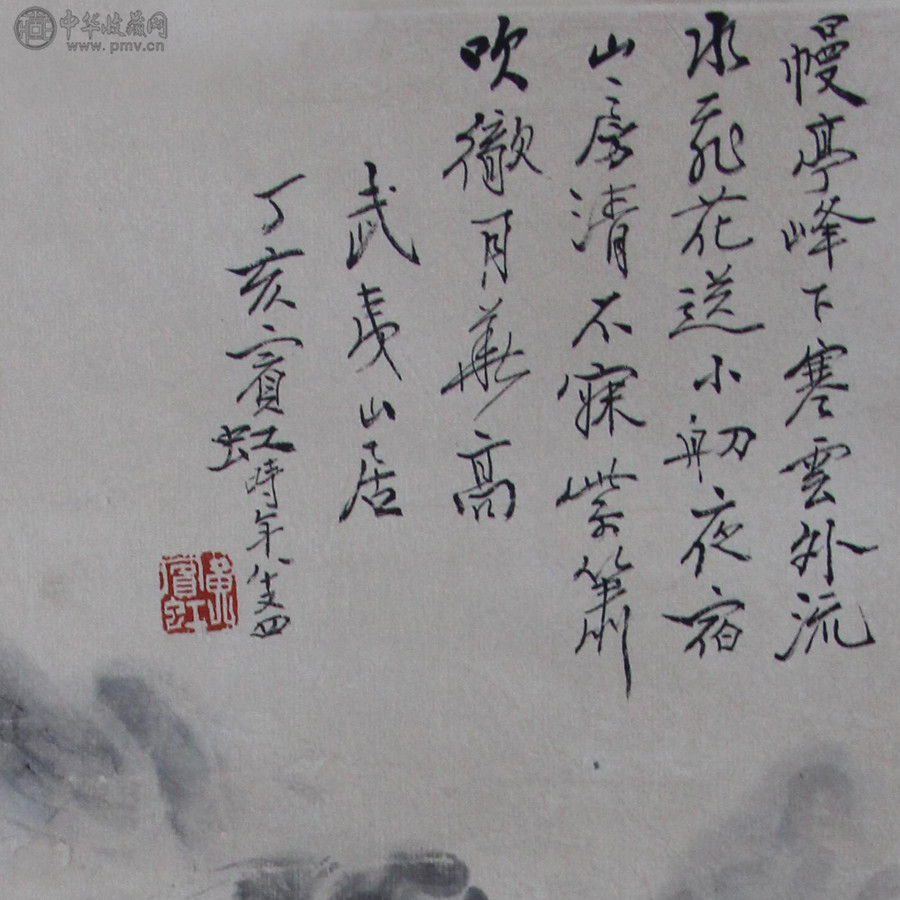 中华收藏网
www.pmv.cn
幔亭峰下寒雲外流
水飛花送小舠夜宿
山房清不寐紫簫
吹徹月華高
武夷山居
丁亥賓虹時年八十又四
黃賓虹